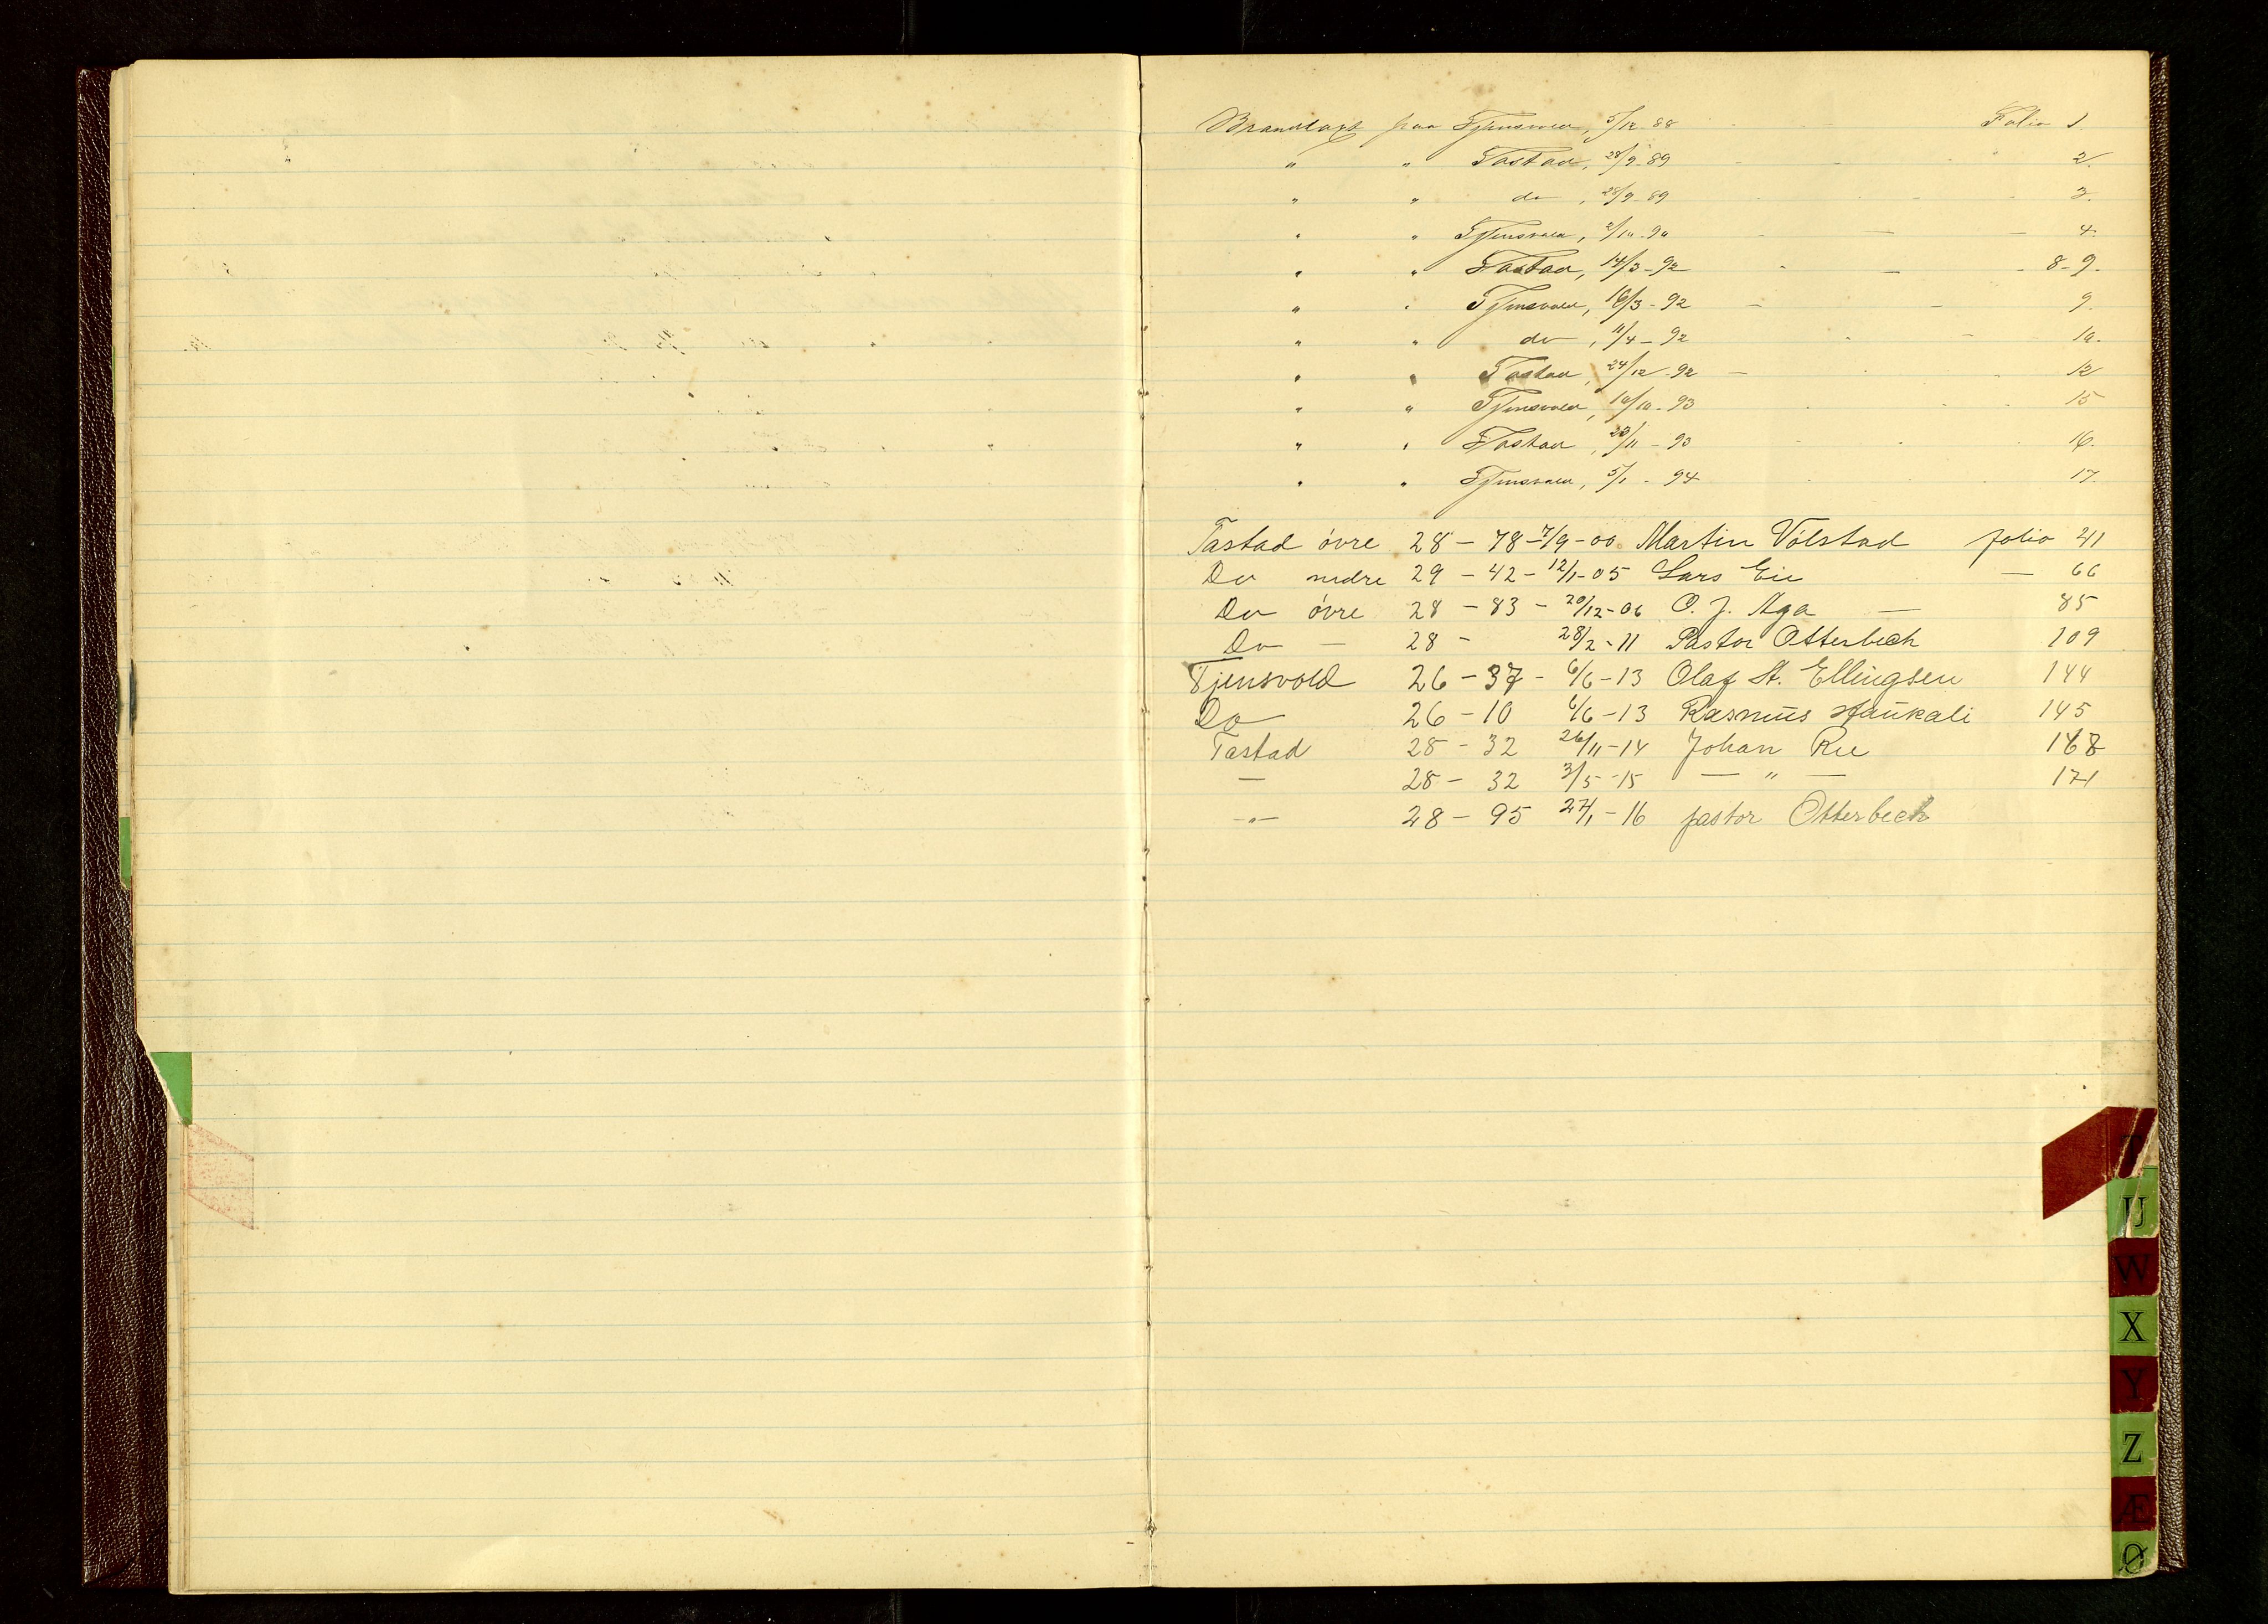 Brandtaxt paa Tjensvold, 5/12 88 Folio 1.
" " Tastad, 28/9-89 2.
" " do, 28/9-89 3.
" " Tjensvold, 2/10-90 — — 4.
" " Tastad, 14/3-92 — 8-9.
" " Tjensvold, 16/3-92 — — 9.
" " do, 11/4-92 — 10.
" " Tastad, 24/12-92 — 12
" " Tjensvold, 10/10-93 15
" " Tastad, 23/11-93 16.
" " Tjensvold, 5/1-94 17.
Tastad övre 28-78-7/9-00 Martin Völstad folio 41
Do nedre 29-42-12/1-05 Lars Eie — 66
Do övre 28-83-20/12-06 O. J. Aga — 85
Do — 28- 28/2-11 Pastor Otterbech 109
Tjensvold 26-37-6/6-13 Olaf St. Ellingsen 144
Do 26-10 6/6-13 Rasmus Haukali 145
Tastad 28-32 26/11-14 Johan Ree 168
— 28-32 3/5-15 — " — 171
-"- 28-95 27/1-16 pastor Otterbech
T
U
W
X
Y
Z
Æ
Ø